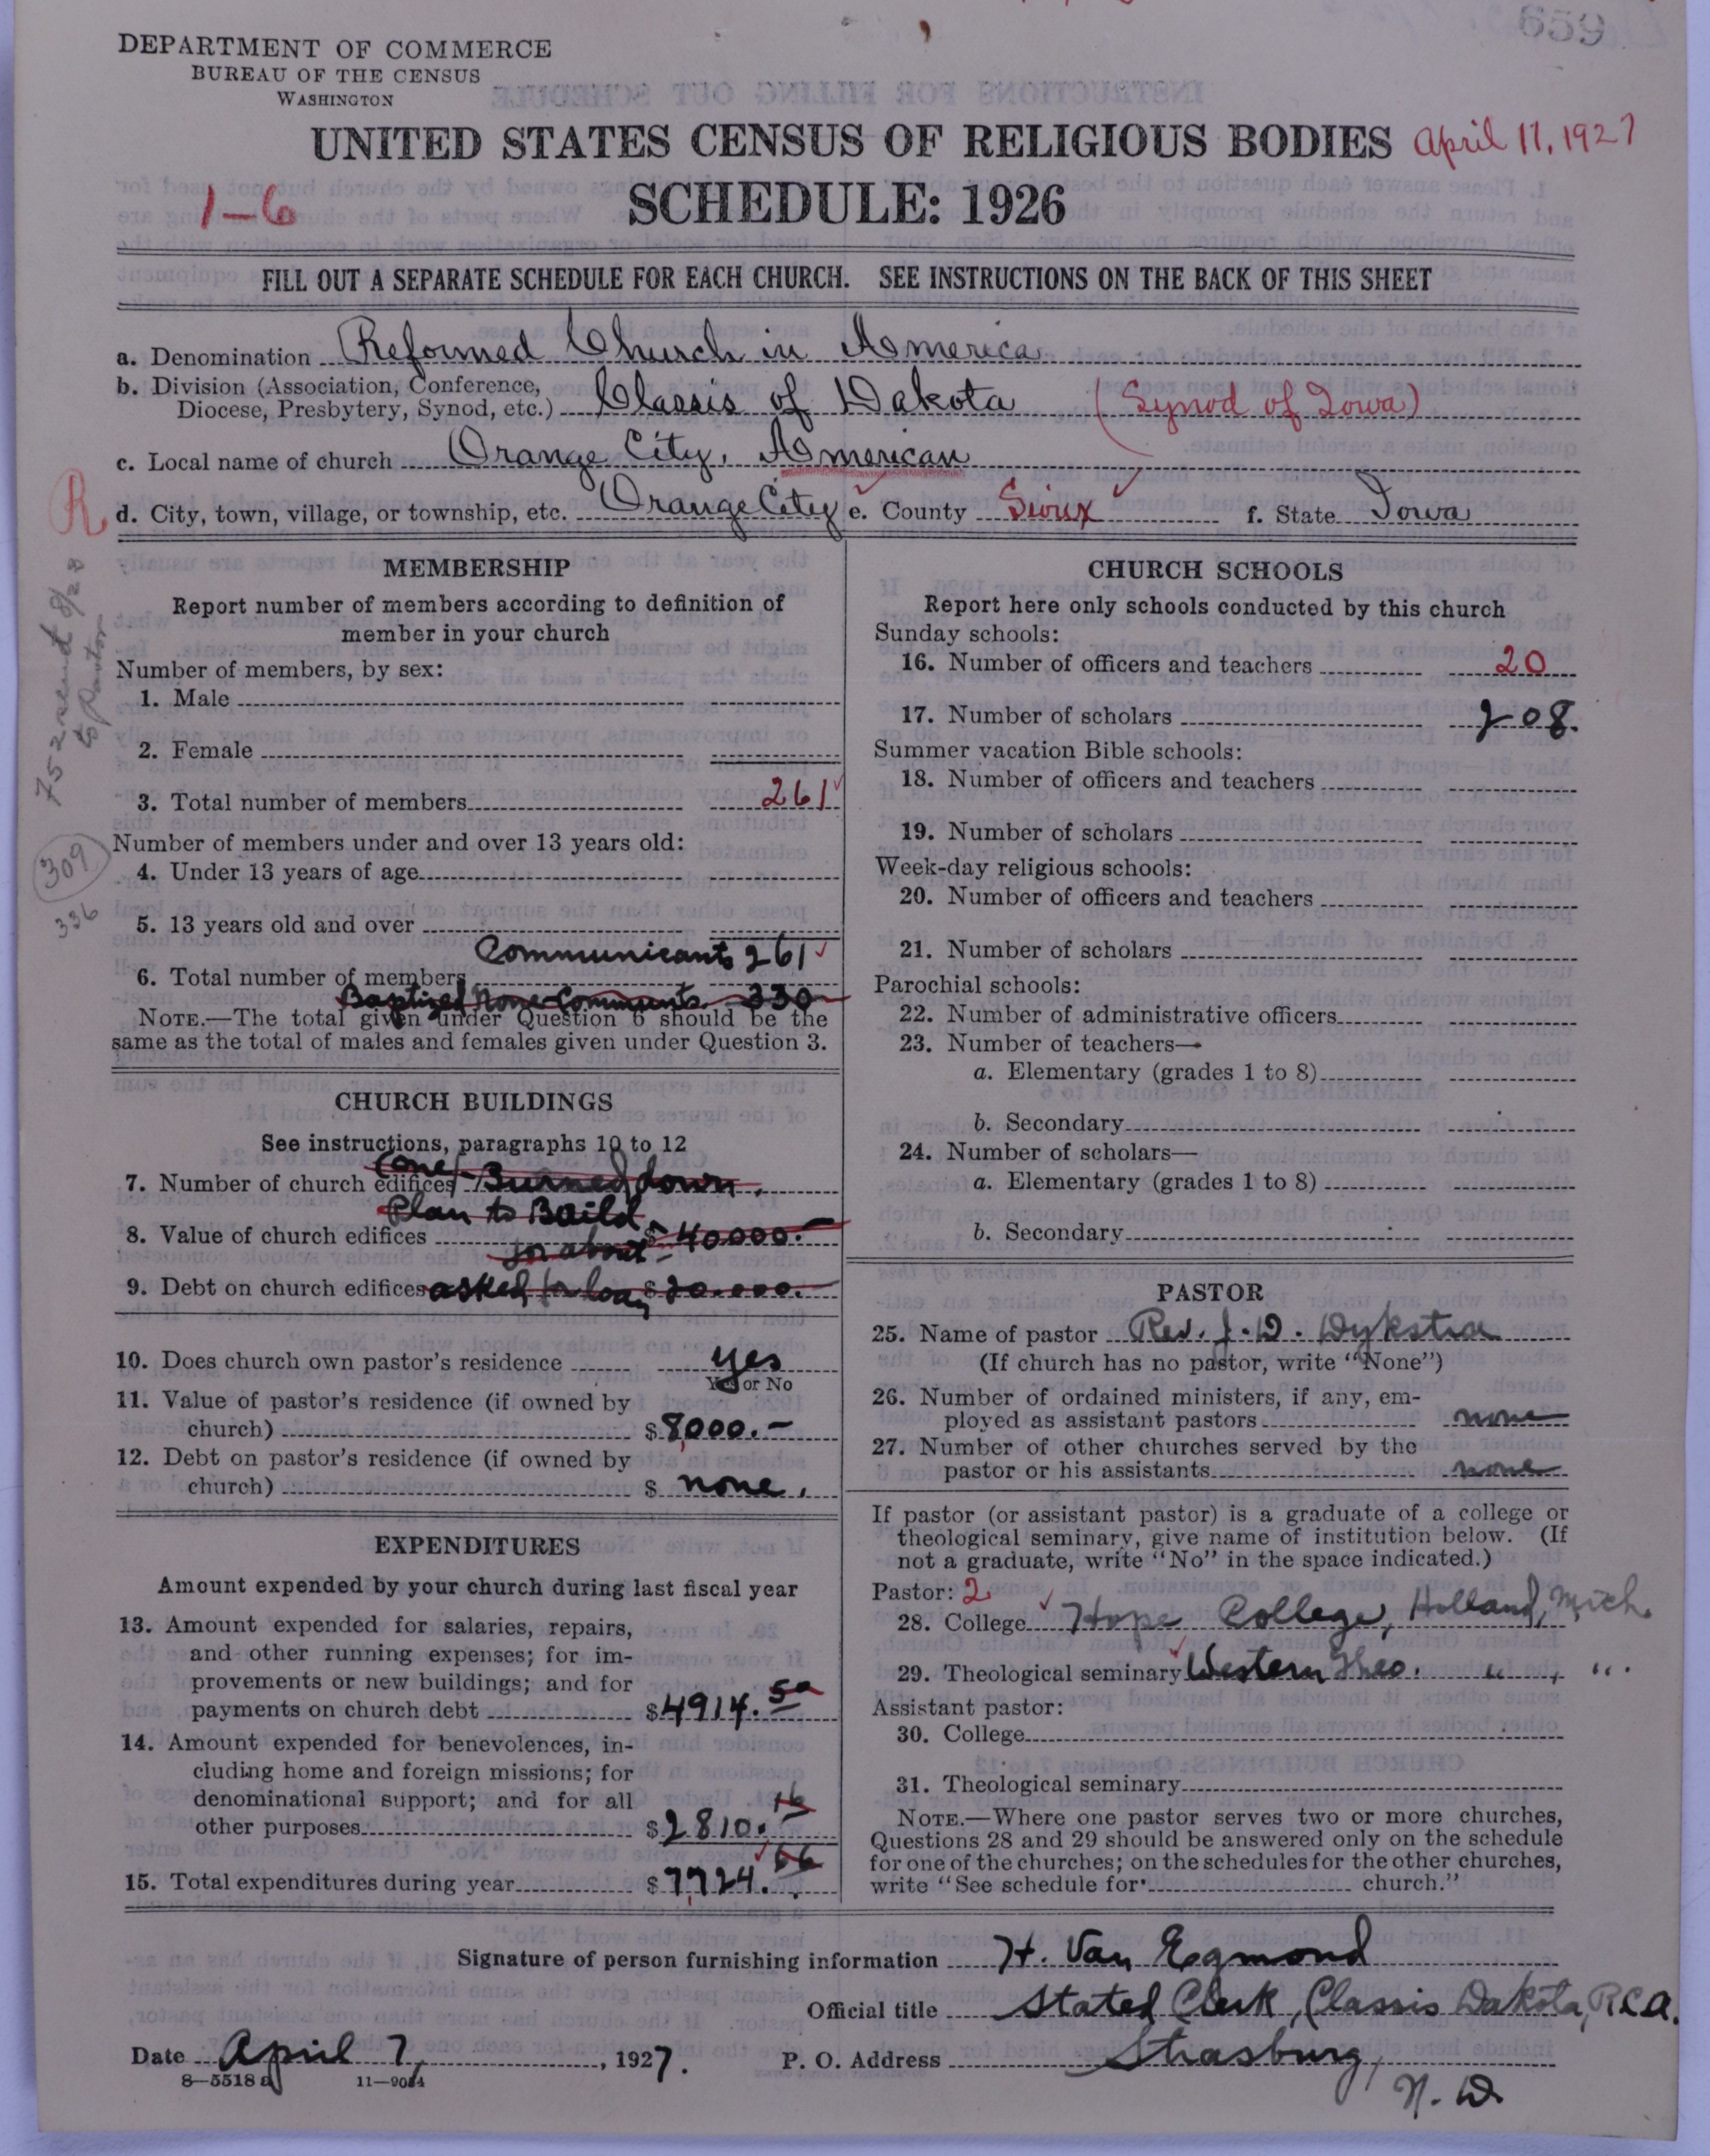 659
DEPARTMENT OF COMMERCE
BUREAU OF THE CENSUS
WASHINGTON
UNITED STATES CENSUS OF RELIGIOUS BODIES April 11, 1927
1-6 SCHEDULE: 1926
FILL OUT A SEPARATE SCHEDULE FOR EACH CHURCH. SEE INSTRUCTIONS ON THE BACK OF THIS SHEET
a. Denomination Reformed Church in America
b. Division (Association, Conference,
Diocese, Presbytery, Synod, etc.) Classis of Dakota (Synod of Iowa)
c. Local name of church Orange City, American
R
d. City, town, village, or township, etc. Orange City e. County Sioux f. State Iowa
MEMBERSHIP
Report number of members according to definition of
member in your church
Number of members, by sex:
1. Male
2. Female
3. Total number of members 261
Number of members under and over 13 years old:
309
336
4. Under 13 years of age
5. 13 years old and over
Communicants 261
6. Total number of members
Baptized None-Communts. 330
NOTE.—The total given under Question 6 should be the
same as the total of males and females given under Question 3.
CHURCH BUILDINGS
See instructions, paragraphs 10 to 12
7. Number of church edifices (one) Burned down.
Plan to Build
8. Value of church edifices for about $40000.-
9. Debt on church edifices asked for loan $20.000.-
10. Does church own pastor's residence yes
Yes or No
11. Value of pastor's residence (if owned by
church) $8,000.-
12. Debt on pastor's residence (if owned by
church) $ none.
EXPENDITURES
Amount expended by your church during last fiscal year
13. Amount expended for salaries, repairs,
and other running expenses; for im-
provements or new buildings; and for
payments on church debt $4914.50
14. Amount expended for benevolences, in-
cluding home and foreign missions; for
denominational support; and for all
other purposes $2810.16
15. Total expenditures during year $7,724.66
CHURCH SCHOOLS
Report here only schools conducted by this church
Sunday schools:
16. Number of officers and teachers 20
17. Number of scholars 208.
Summer vacation Bible schools:
18. Number of officers and teachers
19. Number of scholars
Week-day religious schools:
20. Number of officers and teachers
21. Number of scholars
Parochial schools:
22. Number of administrative officers
23. Number of teachers—
a. Elementary (grades 1 to 8)
b. Secondary
24. Number of scholars—
a. Elementary (grades 1 to 8)
b. Secondary
PASTOR
25. Name of pastor Rev. J. D. Dykstra
(If church has no pastor, write "None")
26. Number of ordained ministers, if any, em-
ployed as assistant pastors none
27. Number of other churches served by the
pastor or his assistants none
If pastor (or assistant pastor) is a graduate of a college or
theological seminary, give name of institution below. (If
not a graduate, write "No" in the space indicated.)
Pastor: 2
28. College Hope College, Holland, Mich.
29. Theological seminary Western Theo. " , "
Assistant pastor:
30. College
31. Theological seminary
NOTE.—Where one pastor serves two or more churches,
Questions 28 and 29 should be answered only on the schedule
for one of the churches; on the schedules for the other churches,
write "See schedule for church."
Signature of person furnishing information H. Van Egmond
Official title Stated Clerk, Classis Dakota, R.C.A.
Date April 7, 1927. P. O. Address Strasburg,
N. D.
8—5518 a 11—9034